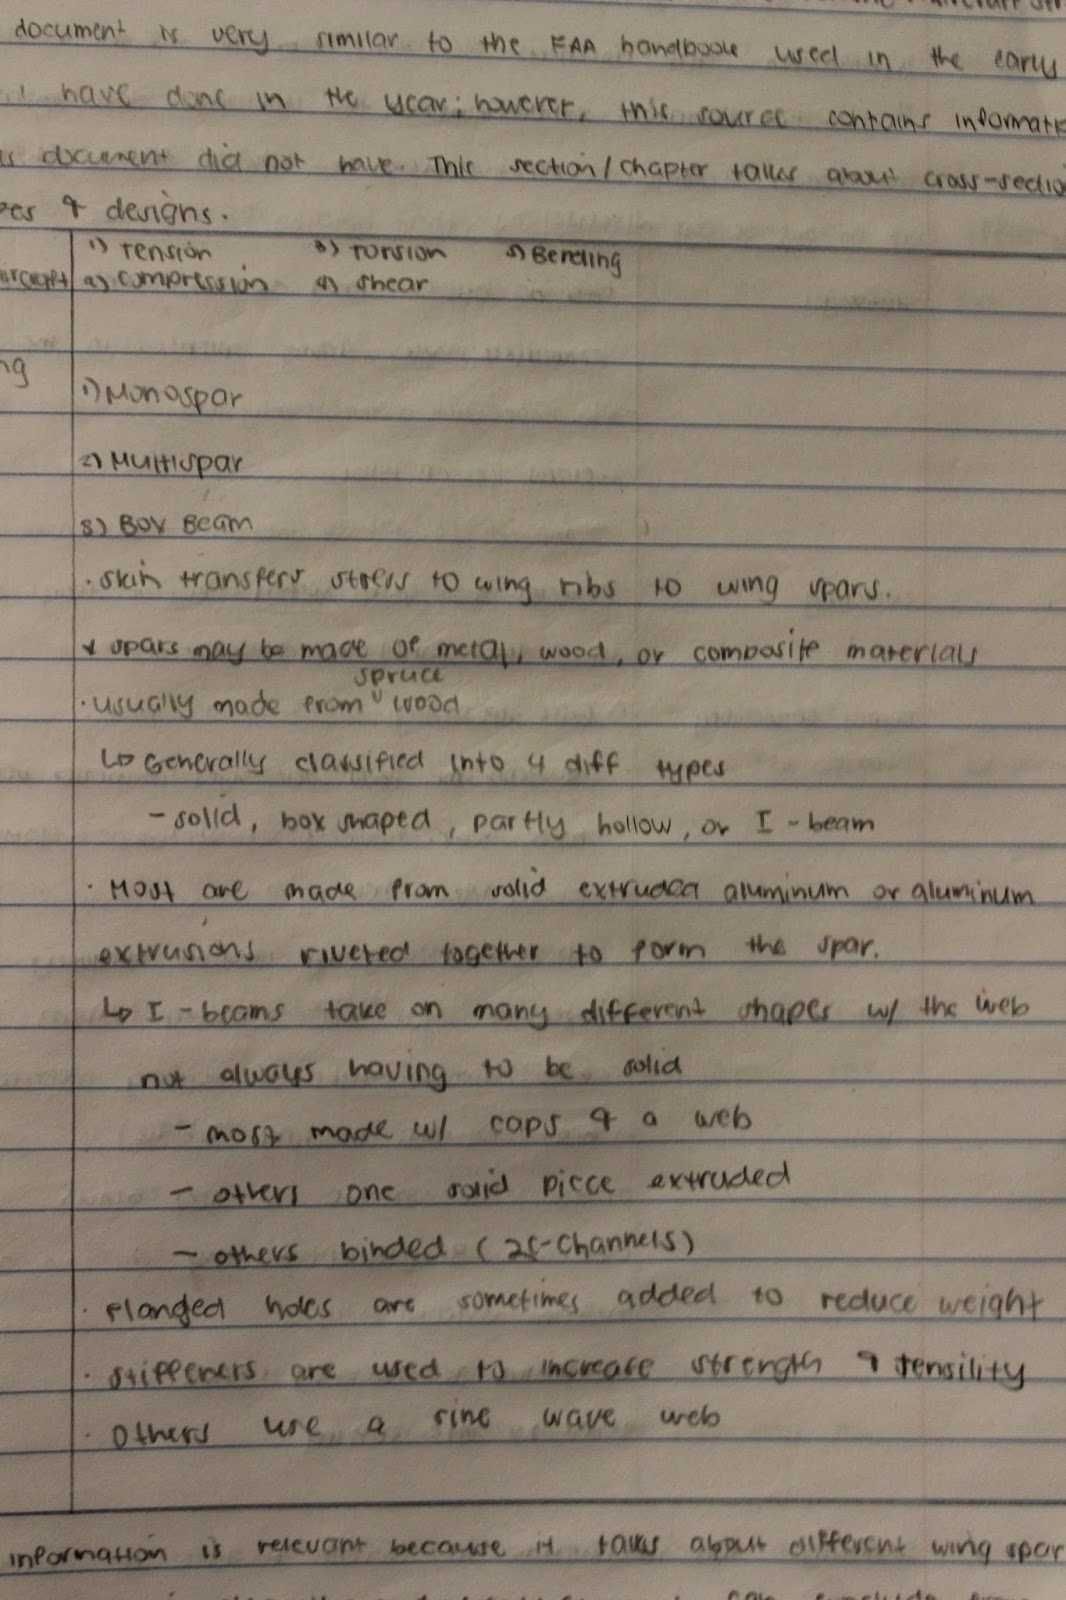 document is very similar to the FAA handbook used in the early
I have done in the year; however, this source contains informati
document did not have. This section/chapter talks about cross-sectio
& designs.
1) Tension 3) Torsion 5) Bending
2) compression 4) shear
ng
1) Monospar
2) Multispar
3) Box Beam
· skin transfers stress to wing ribs to wing spars.
* spars may be made of metal, wood, or composite materials
spruce
· usually made from wood
↳ Generally classified into 4 diff types
- solid, box shaped, partly hollow, or I-beam
· Most are made from solid extruded aluminum or aluminum
extrusions riveted together to form the spar.
↳ I-beams take on many different shapes w/ the web
not always having to be solid
- most made w/ caps & a web
- others one solid piece extruded
- others binded (2C-channels)
· Flanged holes are sometimes added to reduce weight
· stiffeners are used to increase strength & tensility
· others use a sine wave web
information is relevant because it talks about different wing spar